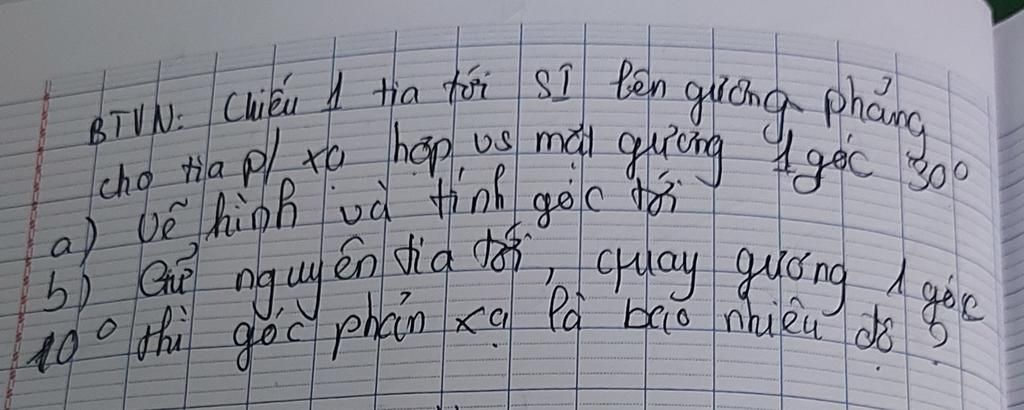 BTVN: Chiếu 1 tia tới SI lên gương phẳng
cho tia p/ xạ hợp vs mặt gương 1 góc 30°
a) Vẽ hình và tính góc tới
b) Giữ nguyên tia tới, quay gương 1 góc
10° thì góc phản xạ là bao nhiêu độ ?